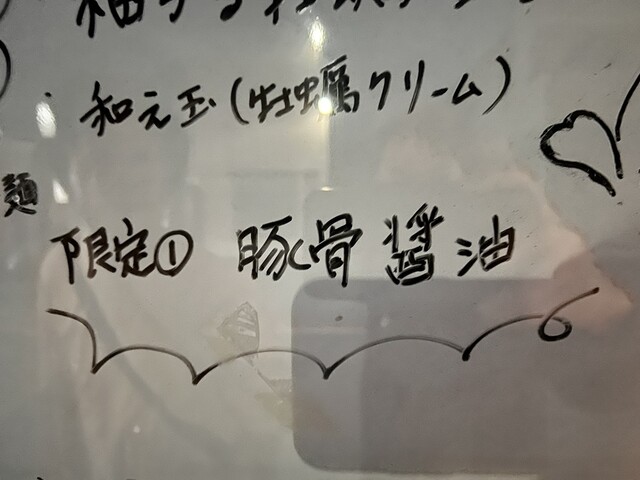 ・和え玉(牡蠣クリーム)
麺
限定① 豚骨醤油